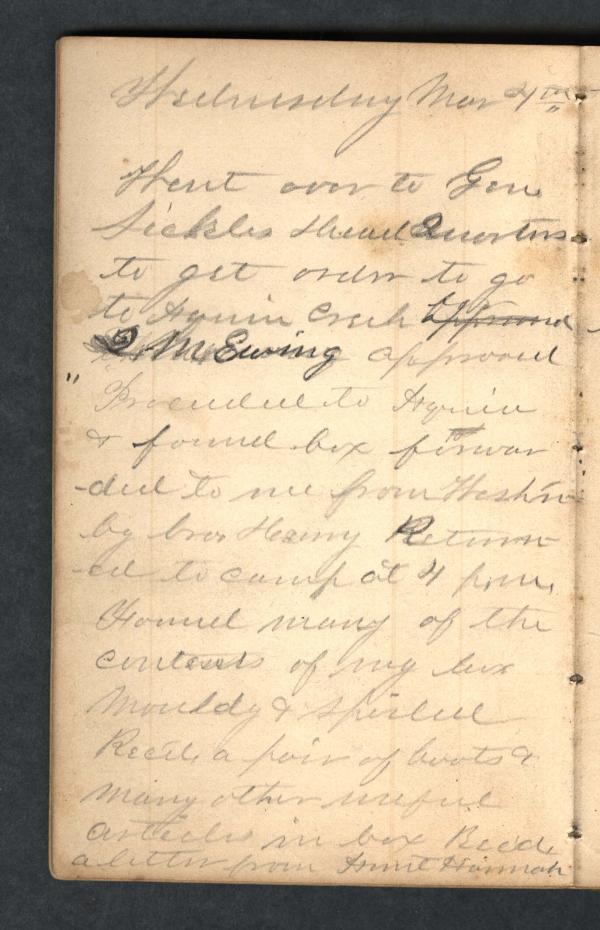 Wednesday Mar 4th
Went over to Gen.
Sickles Head Quarters
to get order to go
to Aquia Creek Approved
McEwing approved
" Proceeded to Aquia
& found box forwar
-ded to me from Washn
by bro Henry Return-
-ed to camp at 4 p.m.
Found many of the
contents of my box
Mouldy & Spoiled
Recd. a pair of boots &
many other useful
articles in box Recd.
a letter from Aunt Hannah